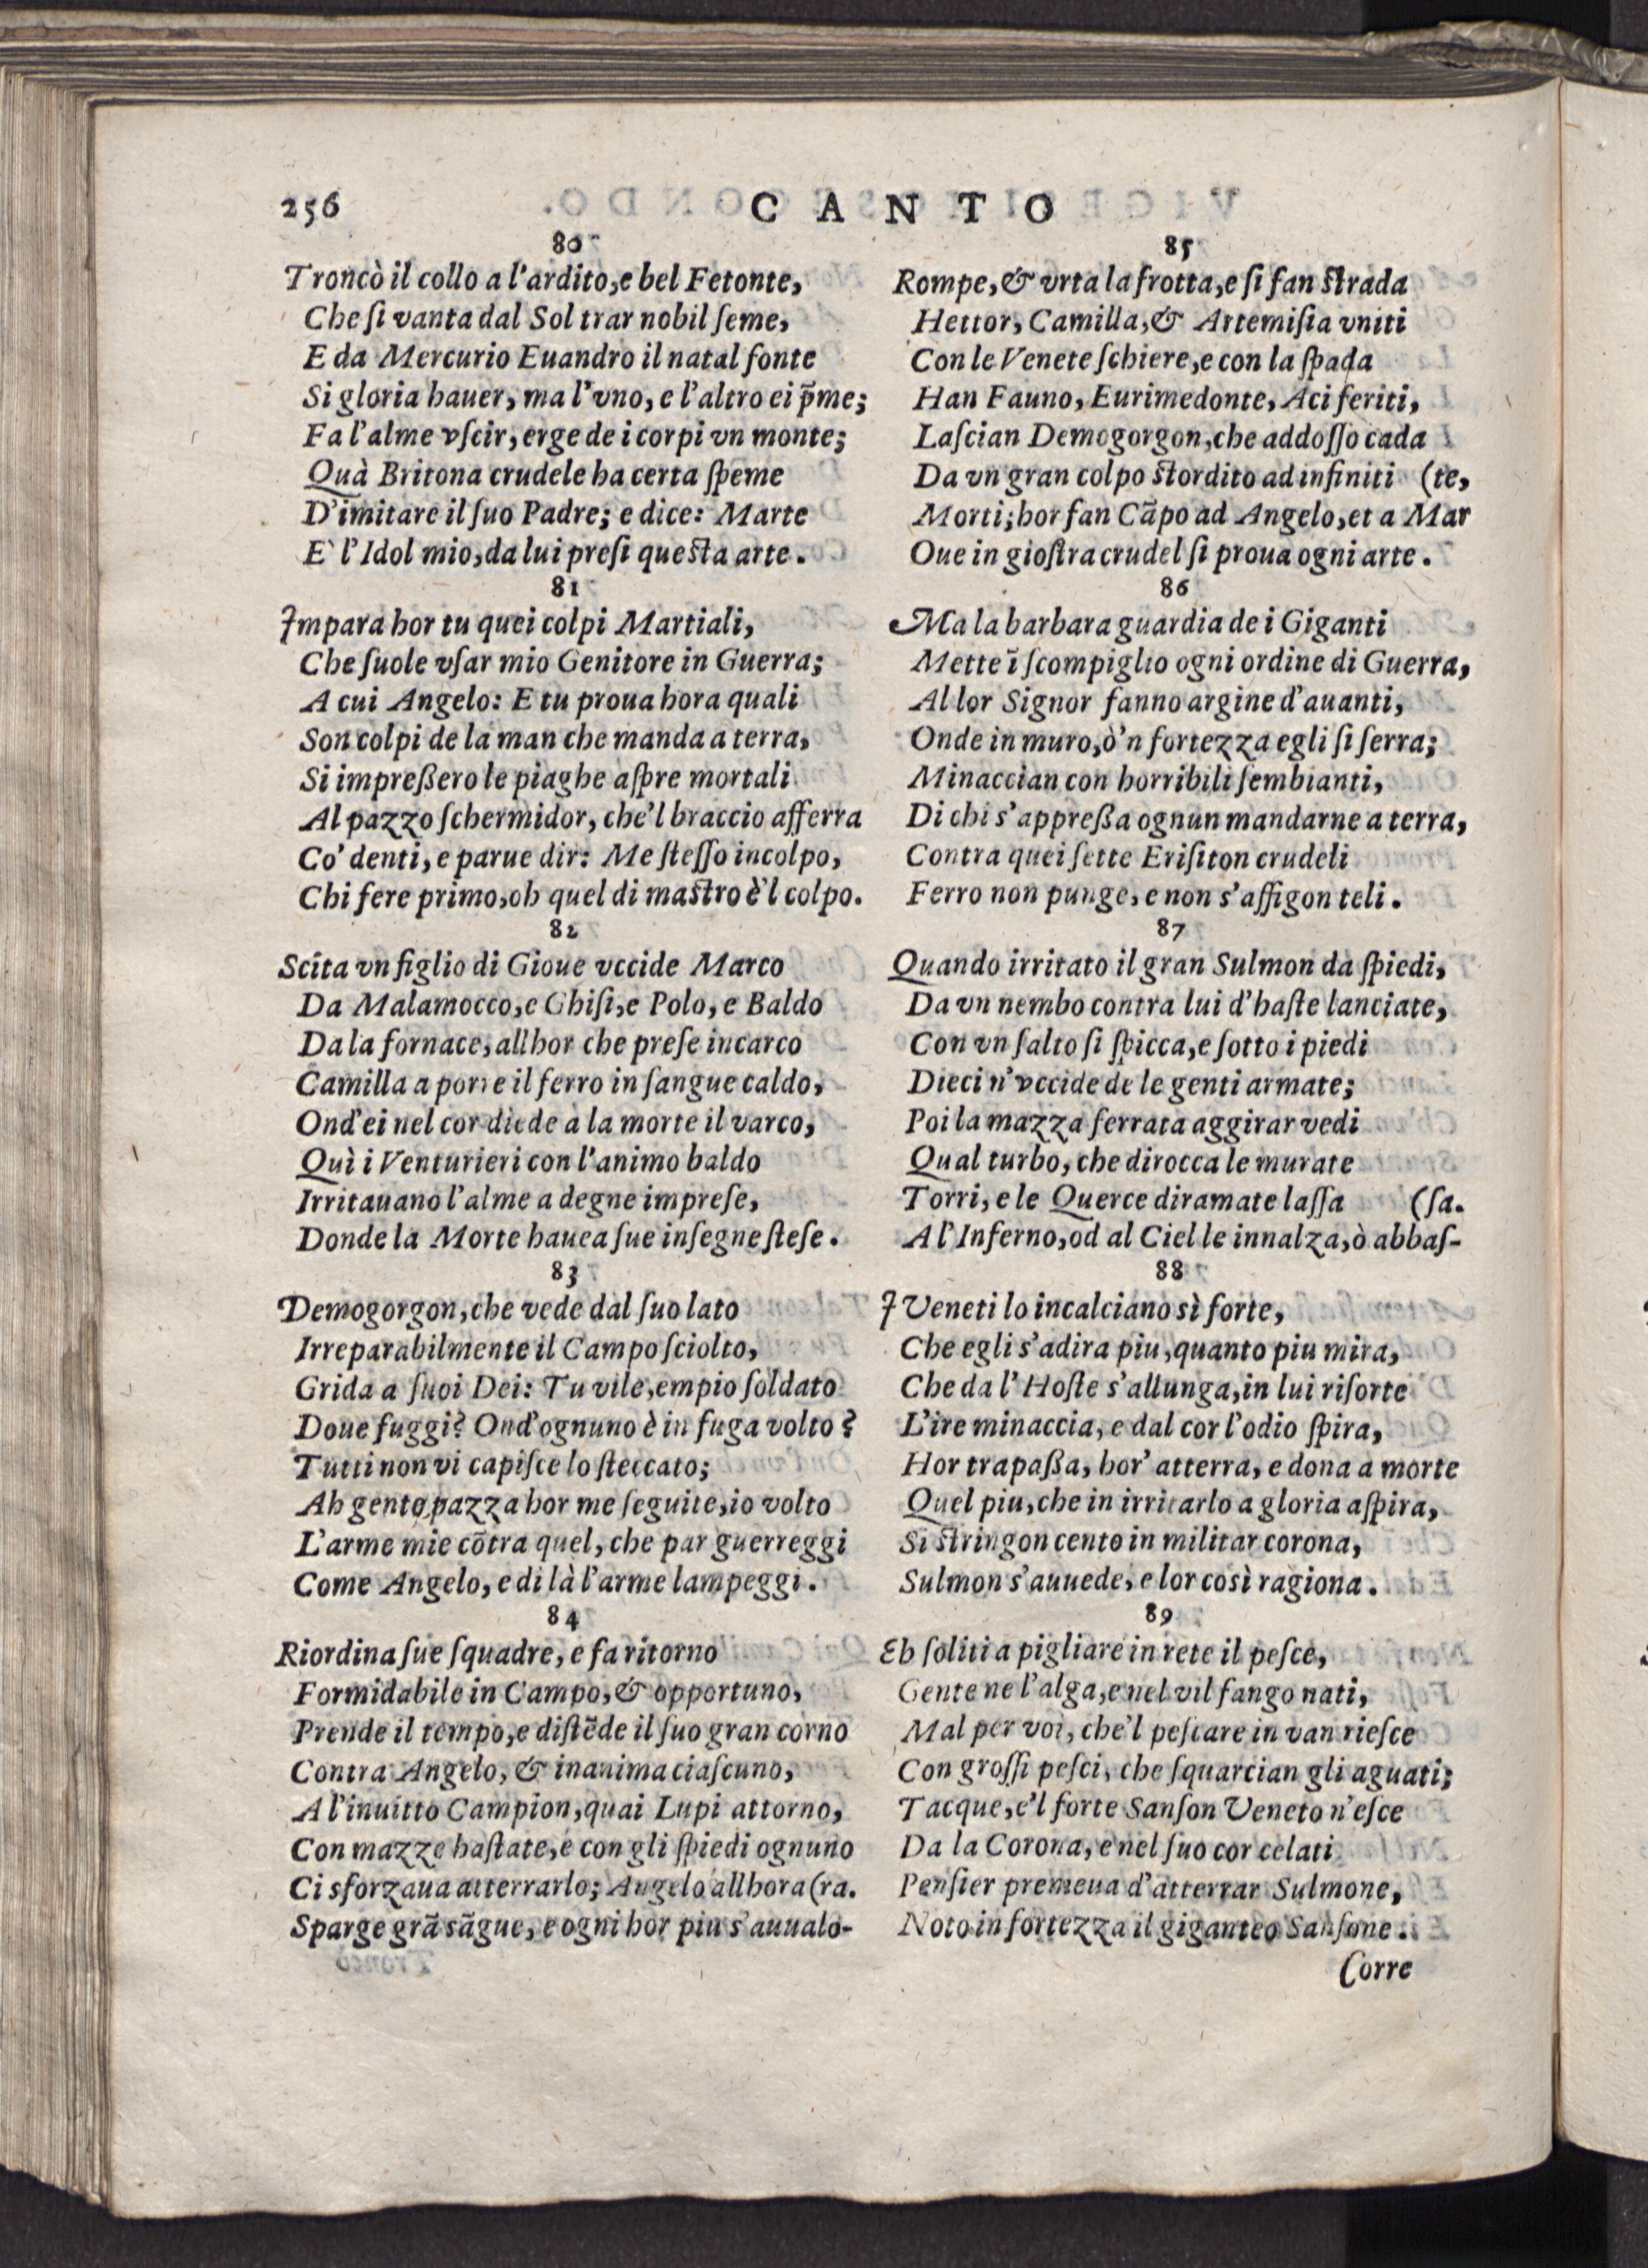 256
CANTO
80
Troncò il collo a l'ardito, e bel Fetonte,
Che ſi vanta dal Sol trar nobil ſeme,
E da Mercurio Euandro il natal fonte
Si gloria hauer, ma l'vno, e l'altro ei p̃me;
Fa l'alme vſcir, erge de i corpi vn monte;
Quà Britona crudele ha certa ſpeme
D'imitare il ſuo Padre; e dice: Marte
E` l'Idol mio, da lui preſi queſta arte.
81
Impara hor tu quei colpi Martiali,
Che ſuole vſar mio Genitore in Guerra;
A cui Angelo: E tu proua hora quali
Son colpi de la man che manda a terra,
Si impreßero le piaghe aſpre mortali
Al pazzo ſchermidor, che'l braccio afferra
Co' denti, e parue dir: Me ſteſſo incolpo,
Chi fere primo, oh quel di maſtro è'l colpo.
82
Scita vn figlio di Gioue vccide Marco
Da Malamocco, e Ghiſi, e Polo, e Baldo
Da la fornace, allhor che preſe incarco
Camilla a porre il ferro in ſangue caldo,
Ond'ei nel cor diede a la morte il varco,
Quì i Venturieri con l'animo baldo
Irritauano l'alme a degne impreſe,
Donde la Morte hauea ſue inſegne ſteſe.
83
Demogorgon, che vede dal ſuo lato
Irreparabilmente il Campo ſciolto,
Grida a ſuoi Dei: Tu vile, empio ſoldato
Doue fuggi? Ond'ognuno è in fuga volto?
Tutti non vi capiſce lo ſteccato;
Ah gente pazza hor me ſeguite, io volto
L'arme mie cõtra quel, che par guerreggi
Come Angelo, e di là l'arme lampeggi.
84
Riordina ſue ſquadre, e fa ritorno
Formidabile in Campo, & opportuno,
Prende il tempo, e diſtẽde il ſuo gran corno
Contra Angelo, & inanima ciaſcuno,
A l'inuitto Campion, quai Lupi attorno,
Con mazze haſtate, e con gli ſpiedi ognuno
Ci sforzaua atterrarlo; Angelo allhora (ra.
Sparge grã sãgue, e ogni hor piu s'auualo-
85
Rompe, & vrta la frotta, e ſi fan ſtrada
Hettor, Camilla, & Artemiſia vniti
Con le Venete ſchiere, e con la ſpada
Han Fauno, Eurimedonte, Aci feriti,
Laſcian Demogorgon, che addoſſo cada
Da vn gran colpo ſtordito ad infiniti (te,
Morti; hor fan Cãpo ad Angelo, et a Mar
Oue in gioſtra crudel ſi proua ogni arte.
86
Ma la barbara guardia de i Giganti
Mette ĩ ſcompiglio ogni ordine di Guerra,
Al lor Signor fanno argine d'auanti,
Onde in muro, ò'n fortezza egli ſi ſerra;
Minaccian con horribili ſembianti,
Di chi s'appreßa ognun mandarne a terra,
Contra quei ſette Eriſiton crudeli
Ferro non punge, e non s'affigon teli.
87
Quando irritato il gran Sulmon da ſpiedi,
Da vn nembo contra lui d'haſte lanciate,
Con vn ſalto ſi ſpicca, e ſotto i piedi
Dieci n'vccide de le genti armate;
Poi la mazza ferrata aggirar vedi
Qual turbo, che dirocca le murate
Torri, e le Querce diramate laſſa (ſa.
A l'Inferno, od al Ciel le innalza, ò abbaſ-
88
I Veneti lo incalciano sì forte,
Che egli s'adira piu, quanto piu mira,
Che da l'Hoſte s'allunga, in lui riſorte
L'ire minaccia, e dal cor l'odio ſpira,
Hor trapaßa, hor' atterra, e dona a morte
Quel piu, che in irritarlo a gloria aſpira,
Si ſtringon cento in militar corona,
Sulmon s'auuede, e lor così ragiona.
89
Eh ſoliti a pigliare in rete il peſce,
Gente ne l'alga, e nel vil fango nati,
Mal per voi, che'l peſcare in van rieſce
Con groſſi peſci, che ſquarcian gli aguati;
Tacque, e'l forte Sanſon Veneto n'eſce
Da la Corona, e nel ſuo cor celati
Penſier premeua d'atterrar Sulmone,
Noto in fortezza il giganteo Sanſone.
Corre